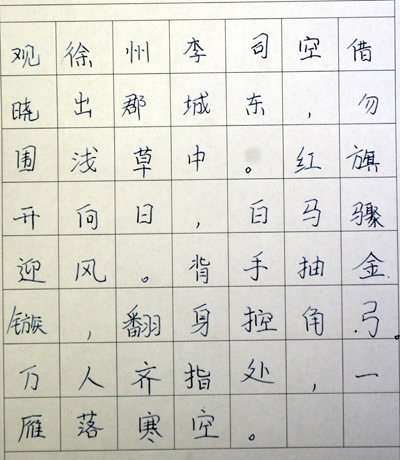 观徐州李司空借
晓出郡城东，勿
围浅草中。红旗
开向日，白马骤
迎风。背手抽金
镞，翻身控角弓。
万人齐指处，一
雁落寒空。